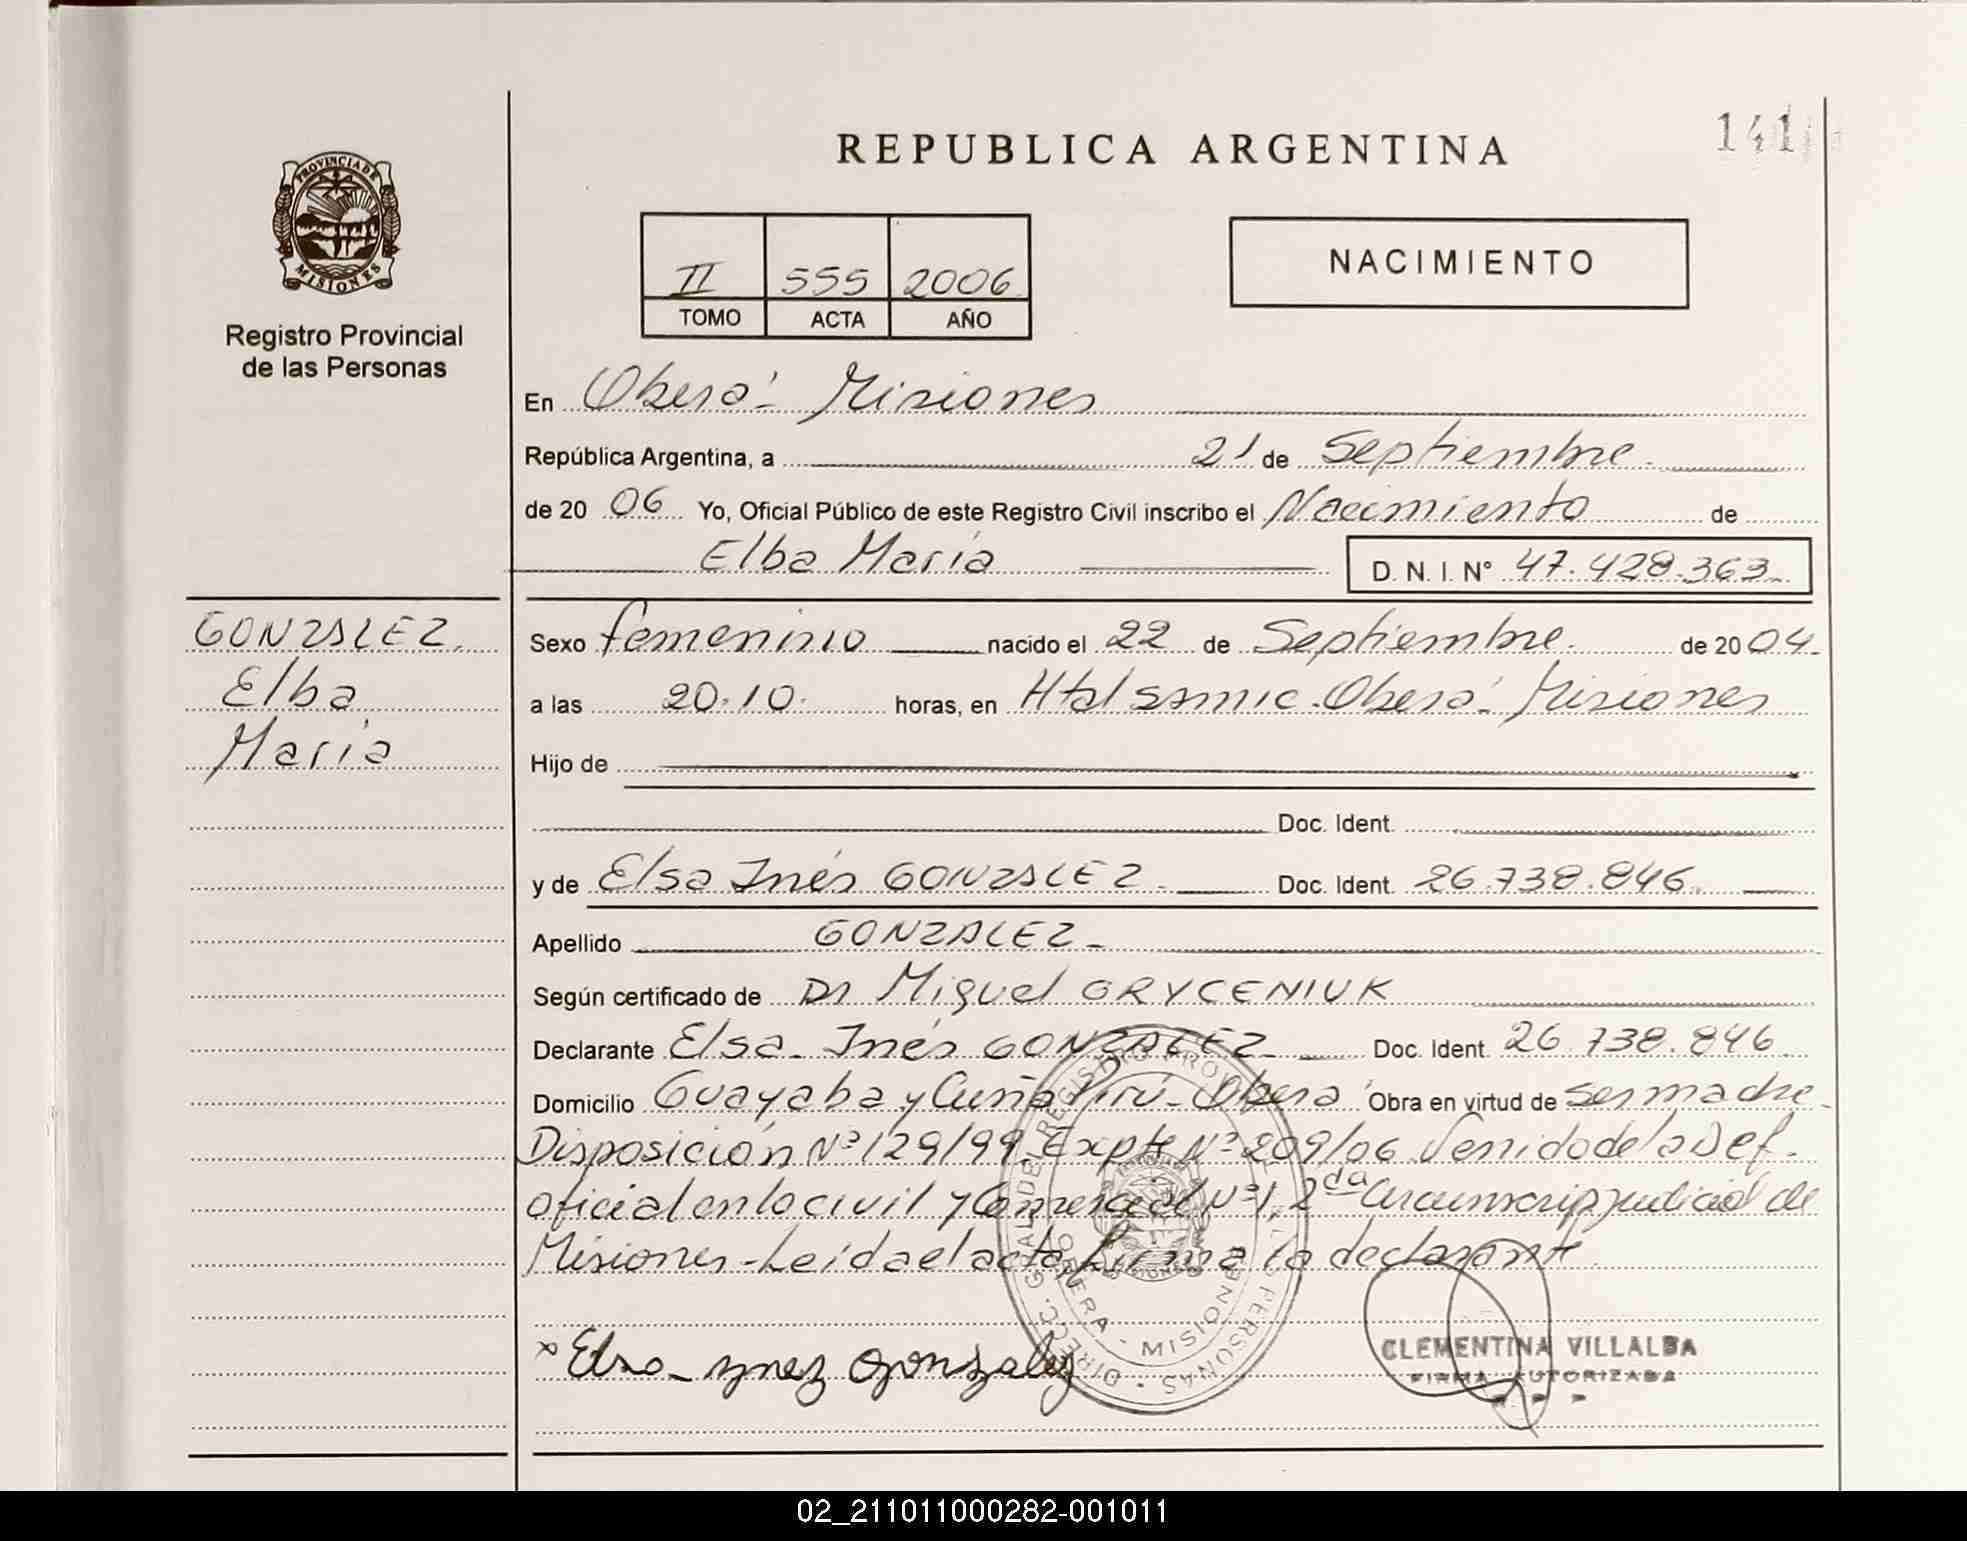 141
REPUBLICA ARGENTINA
PROVINCIA DE
MISIONES
Registro Provincial
de las Personas
II 555 2006
TOMO ACTA AÑO
NACIMIENTO
En Oberá - Misiones
República Argentina, a 21 de Septiembre
de 20 06 Yo, Oficial Público de este Registro Civil inscribo el Nacimiento de
Elba María D. N. I. N° 47.428.363
GONZALEZ
Elba
María
Sexo femenino nacido el 22 de Septiembre de 20 04
a las 20.10. horas, en Htal SAMIC - Oberá - Misiones
Hijo de
Doc. Ident.
y de Elsa Inés GONZALEZ Doc. Ident. 26.738.846
Apellido GONZALEZ
Según certificado de Dr Miguel GRYCENIUK
Declarante Elsa Inés GONZALEZ Doc. Ident. 26.738.846
Domicilio Guayaba y Cuña Pirú - Oberá Obra en virtud de ser madre
Disposición Nº 129/99 Expte Nº 209/06 Venido de la Def.
oficial en lo civil y Comercial Nº 1, 2da Circunscrip judicial de
Misiones - Leída el acta firma la declarante
x Elsa ynez gonzalez
CLEMENTINA VILLALBA
FIRMA AUTORIZADA
DIRECC. GRAL. DEL REGISTRO PROV. DE LAS PERSONAS
OBERA - MISIONES
02_211011000282-001011